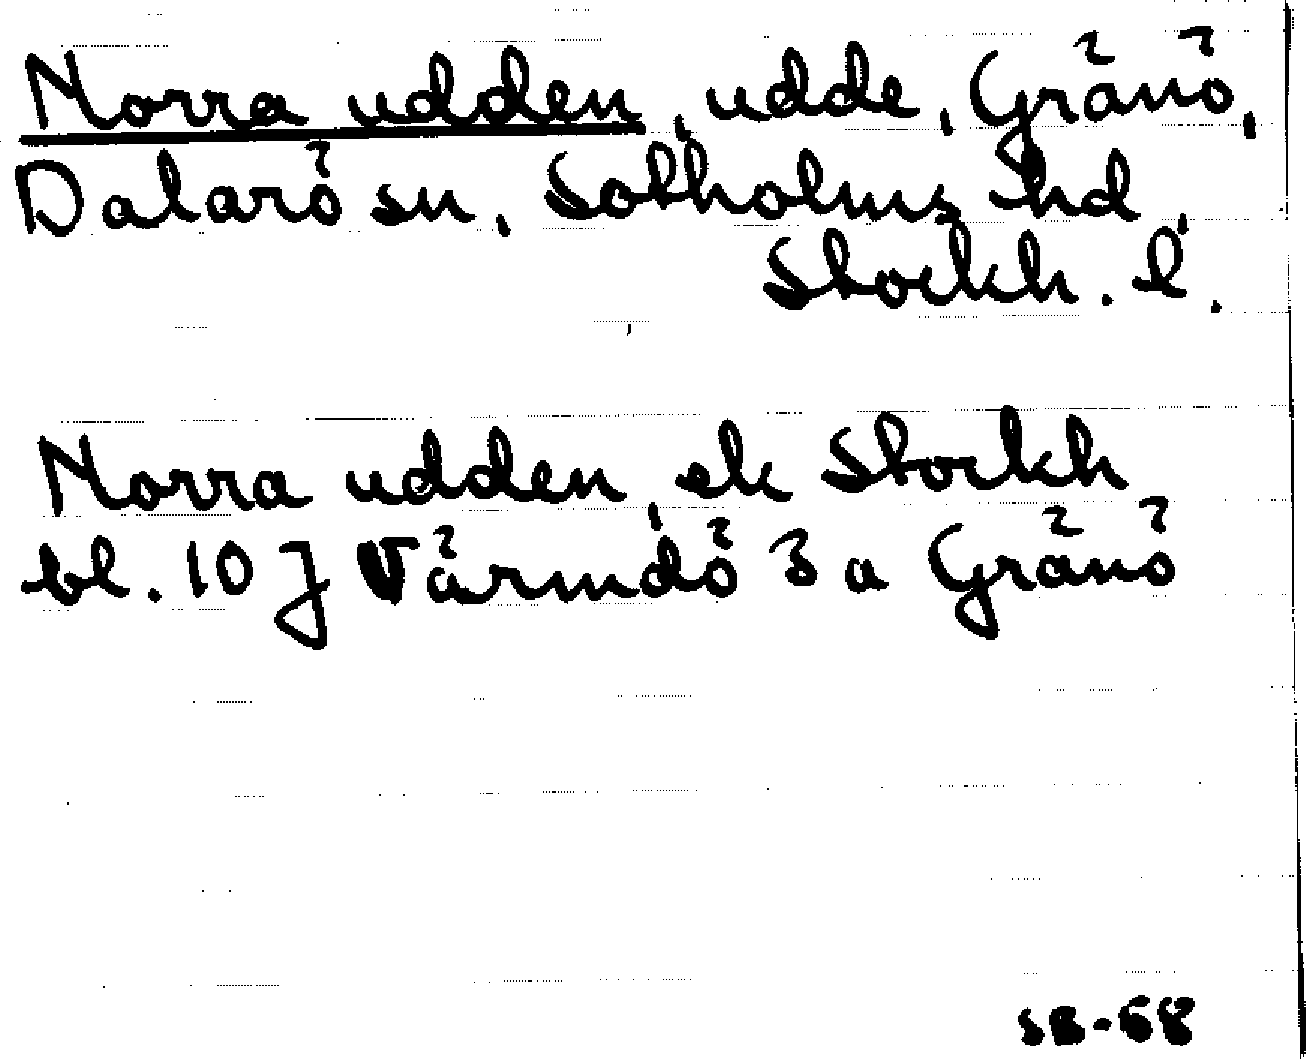 Norra udden, udde, Gränö,
Dalarö sn, Sotholms hd,
Stockh. l.
Norra udden, ek Stockh
bl. 10 J Värmdö 3 a Gränö
SB-68